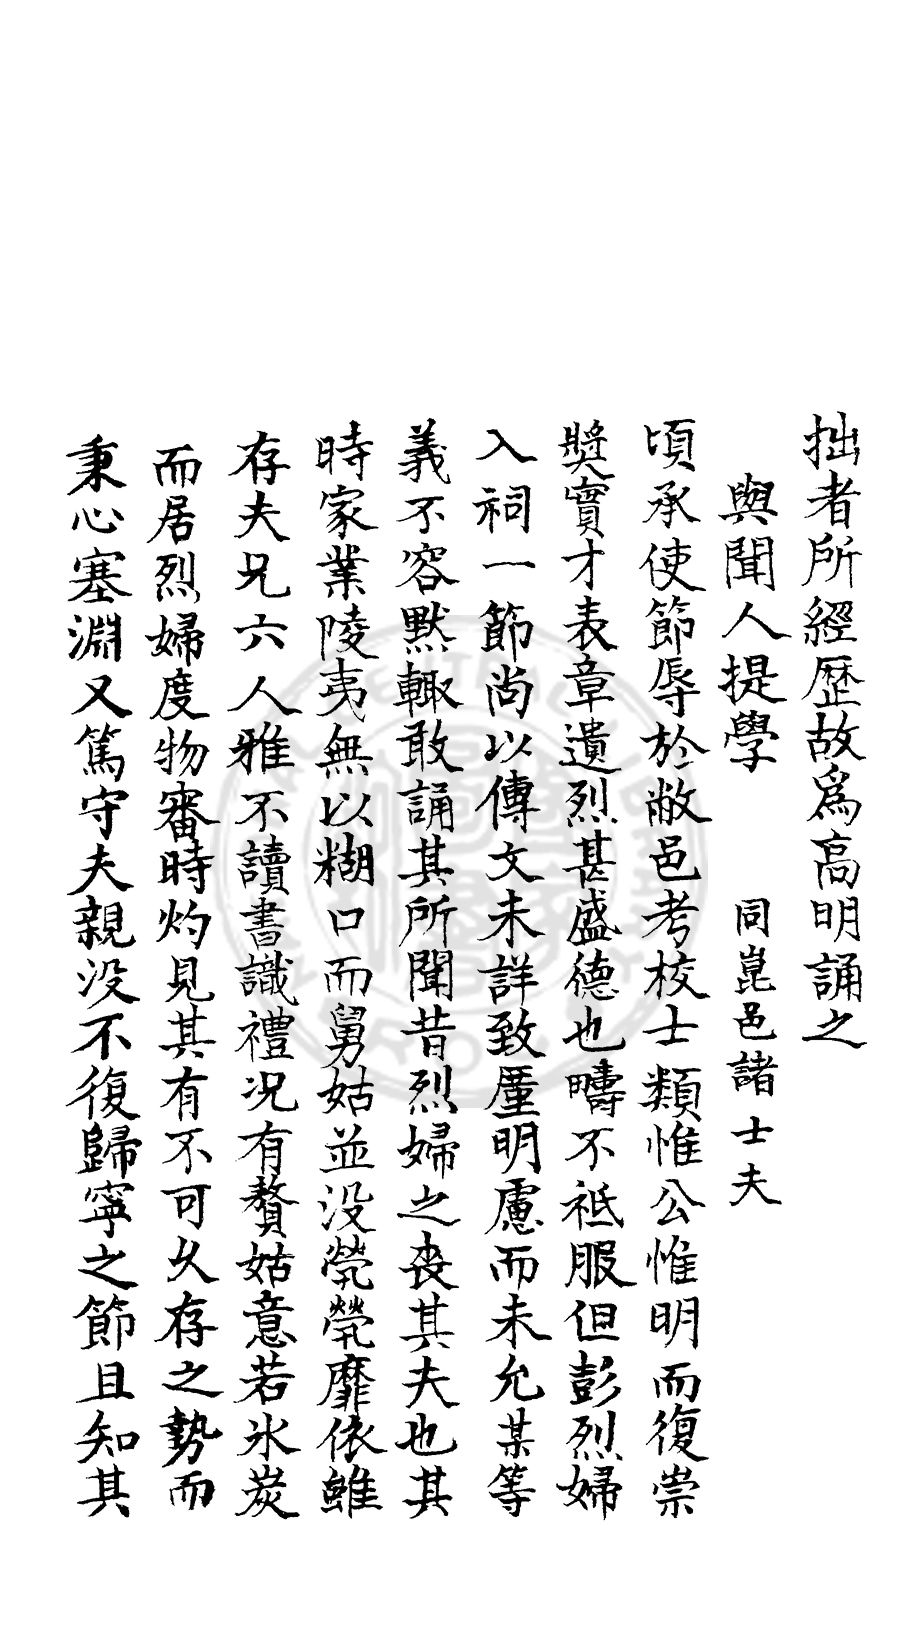 拙者所經歷故爲高明誦之
與聞人提學　同崑邑諸士夫
頃承使節辱於敝邑考校士類惟公惟明而復崇
奬實才表章遺烈甚盛德也疇不祗服但彭烈婦
入祠一節尚以傳文未詳致厪明慮而未允某等
義不容黙輙敢誦其所聞昔烈婦之喪其夫也其
時家業陵夷無以糊口而舅姑並没煢煢靡依雖
存夫兄六人雅不讀書識禮况有贅姑意若氷炭
而居烈婦度物審時灼見其有不可乆存之勢而
秉心塞淵又篤守夫親没不復歸寧之節且知其